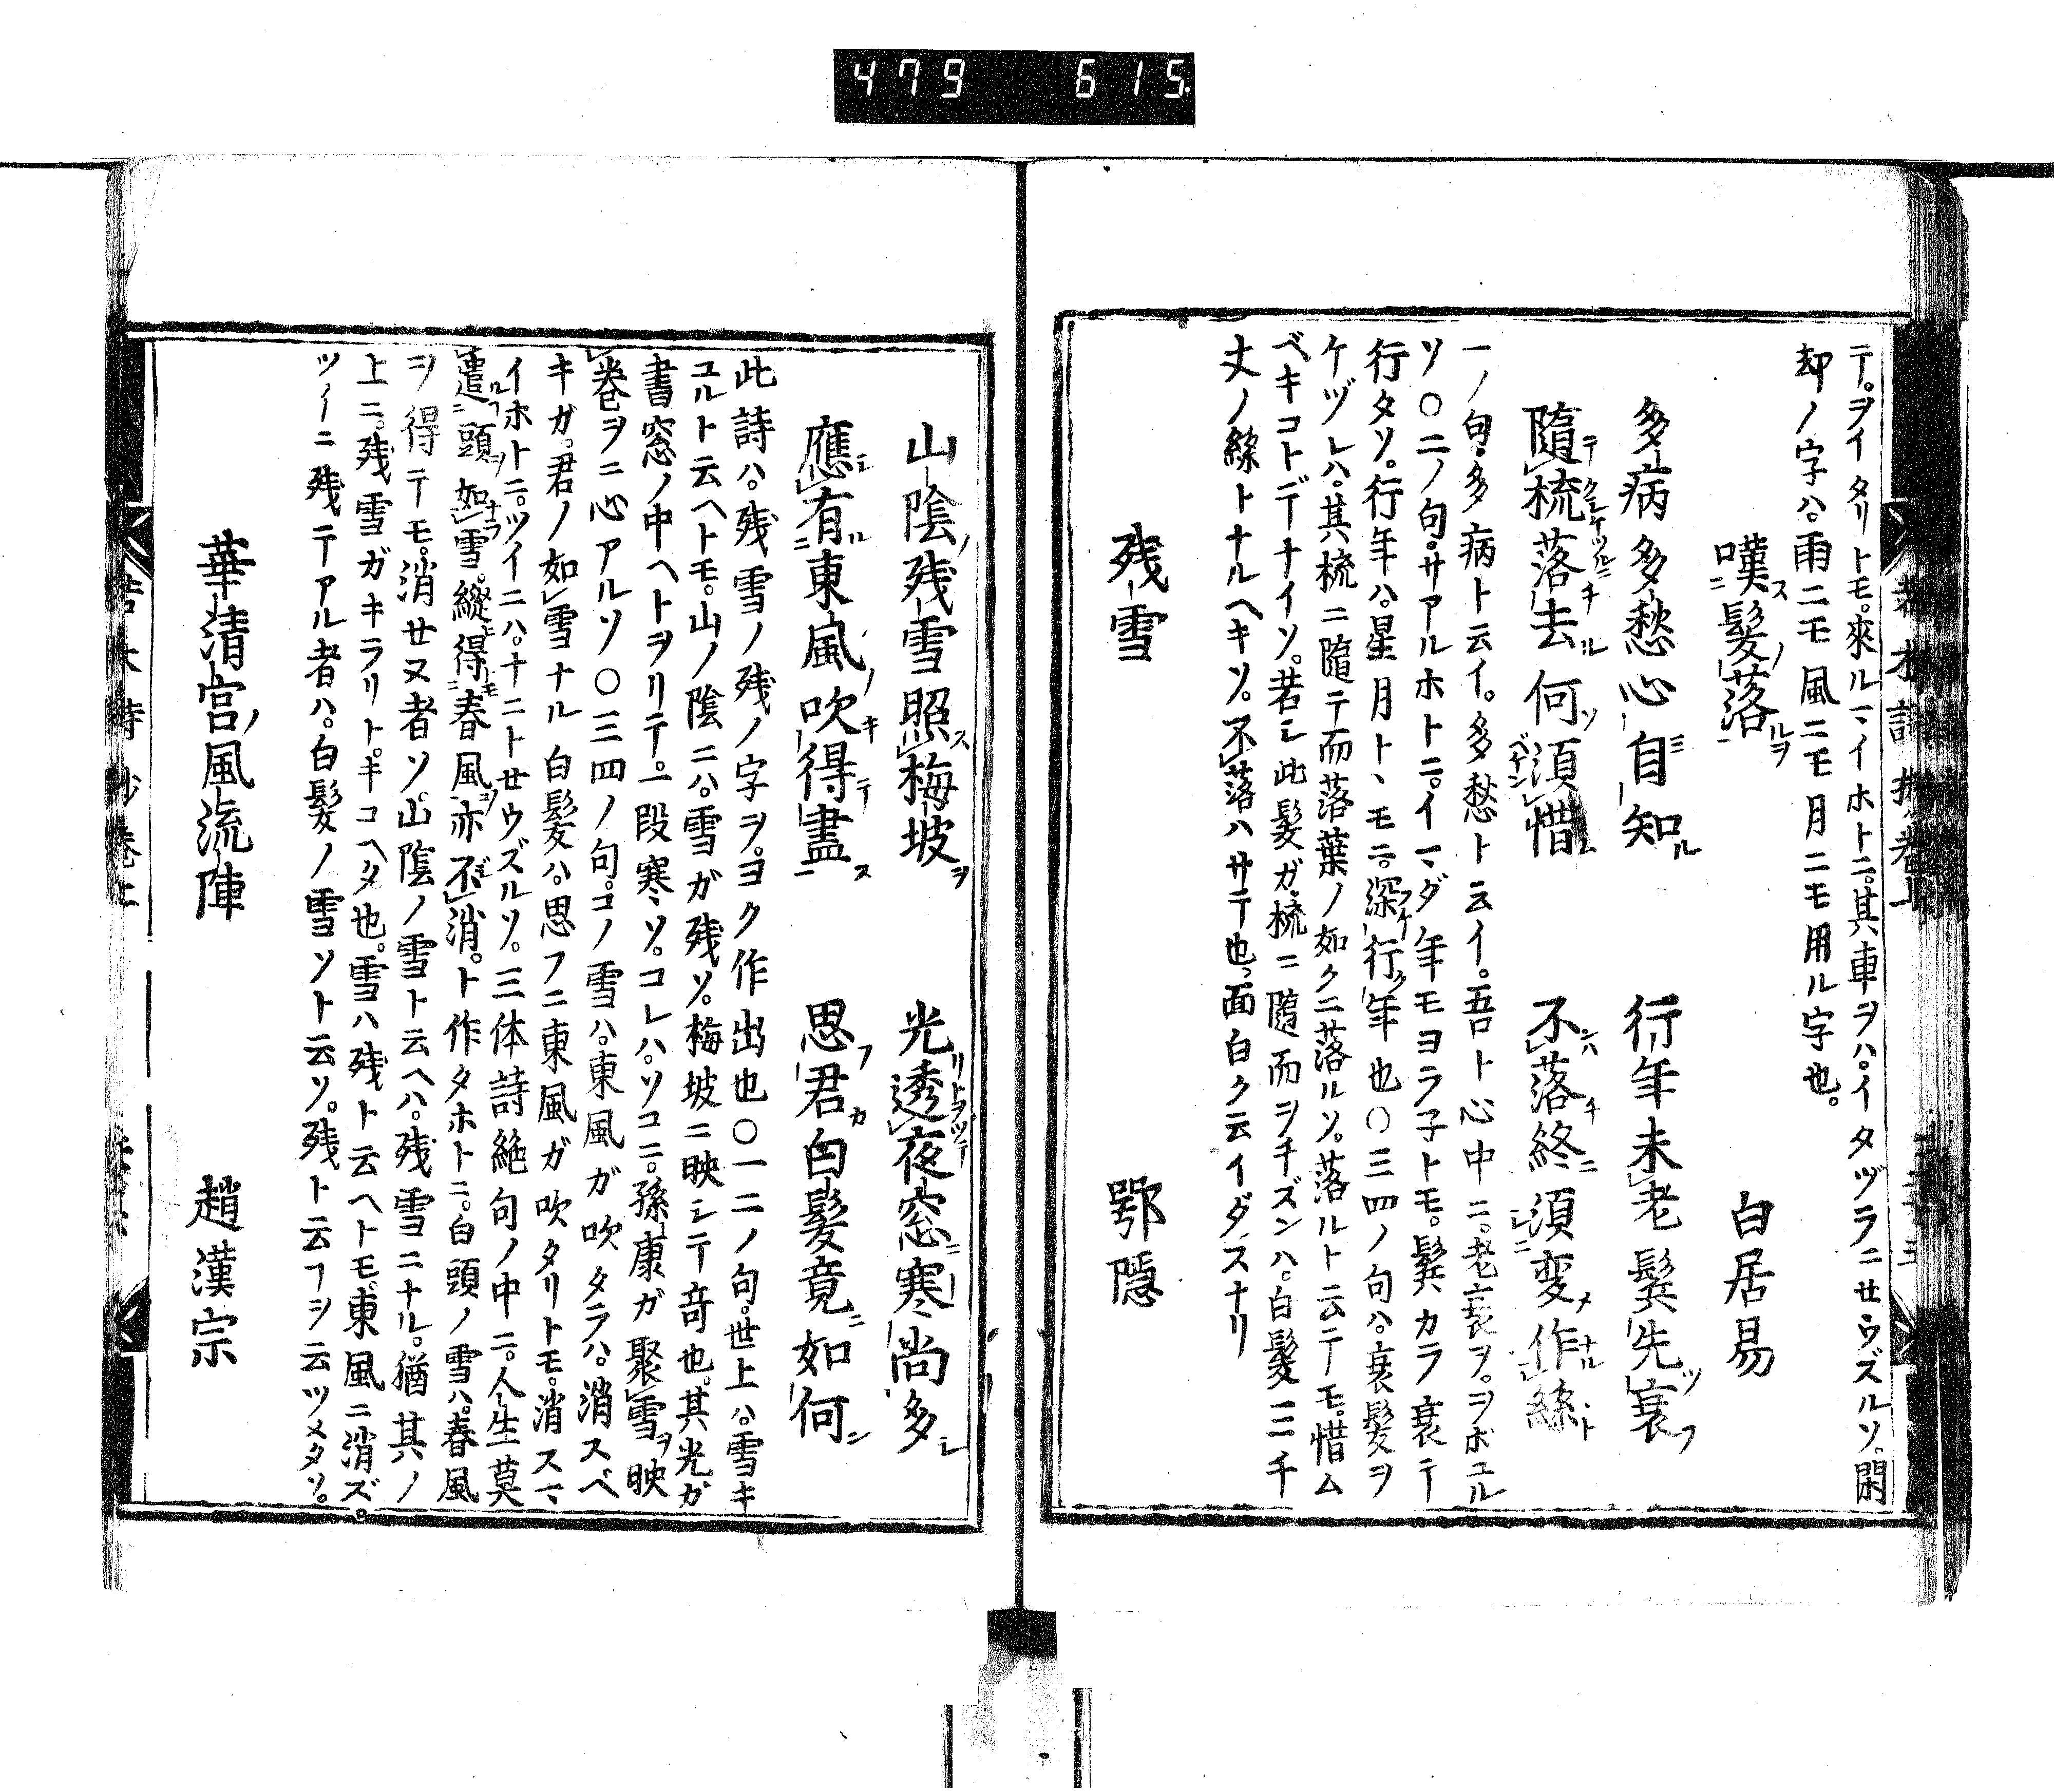 479 615
テ。ヲイタリトモ。來ルマイホトニ。其車ヲハ。イタヅラニサウズルソ。閑
却ノ字ハ。雨ニモ風ニモ月ニモ用ル字也。
嘆髮落 白居易
多病多愁心自知 行年未老髮先衰
隨梳落去何須惜 不落終須変作絲
一ノ句。多病ト云イ。多愁ト云イ。吾ト心中ニ。老衰ヲ。ヲボユル
ソ〇二ノ句。サアルホトニ。イマダ年モヨラ子トモ。髮カラ衰テ
行タソ。行年ハ。星月トヽモニ。深行年也〇三四ノ句ハ。衰髮ヲ
ケヅレハ。其梳ニ隨テ而落葉ノ如クニ落ルソ。落ルト云テモ。惜ム
ベキコトデナイソ。若シ此髮ガ。梳ニ隨而ヲチズンハ。白髮三千
丈ノ絲トナルヘキソ。不落ハサテ也。面白ク云イダスナリ
残雪 鄂隠
山陰残雪照梅坡 光透夜窓寒尚多
應有東風吹得盡 思君白髮竟如何
此詩ハ。残雪ノ残ノ字ヲ。ヨク作出也〇一二ノ句。世上ハ。雪キ
ユルト云ヘトモ。山ノ陰ニハ。雪ガ残ソ。梅坡ニ映シテ竒也。其光ガ
書窓ノ中ヘトヲリテ。一段寒ソ。コレハ。ソコニ。孫康ガ聚雪ヲ映
巻ヲニ心アルソ〇三四ノ句。コノ雪ハ。東風ガ吹タラハ。消スベ
キガ。君ノ如雪ナル白髮ハ。思フニ東風ガ吹タリトモ。消スマ
イホトニ。ツイニハ。十ニトせウズルソ。三体詩絶句ノ中ニ。人生莫
遣頭如雪。縱得春風亦不消。ト作タホトニ。白頭ノ雪ハ。春風
ヲ得テモ。消せヌ者ソ。山陰ノ雪ト云ヘハ。残雪ニナル。猶其ノ
上ニ。残雪ガキラリト。キコヘタ也。雪ハ残ト云ヘトモ。東風ニ消ズ。
ツイニ残テアル者ハ。白髮ノ雪ソト云ソ。残ト云フヲ云ツメタソ。
華清宮風流陣 趙漢宗